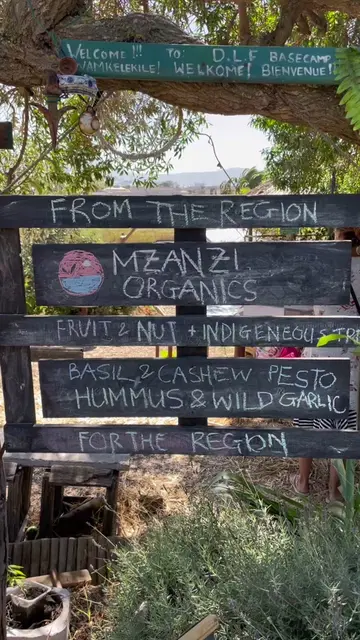 WELCOME!!! TO: D.L.F BASECAMP
WAMKELEKILE! WELCOME! BIENVENUE!!
FROM THE REGION
MZANZI
ORGANICS
FRUIT & NUT + INDIGENEOUS TRE
BASIL & CASHEW PESTO
HUMMUS & WILD GARLIC
FOR THE REGION